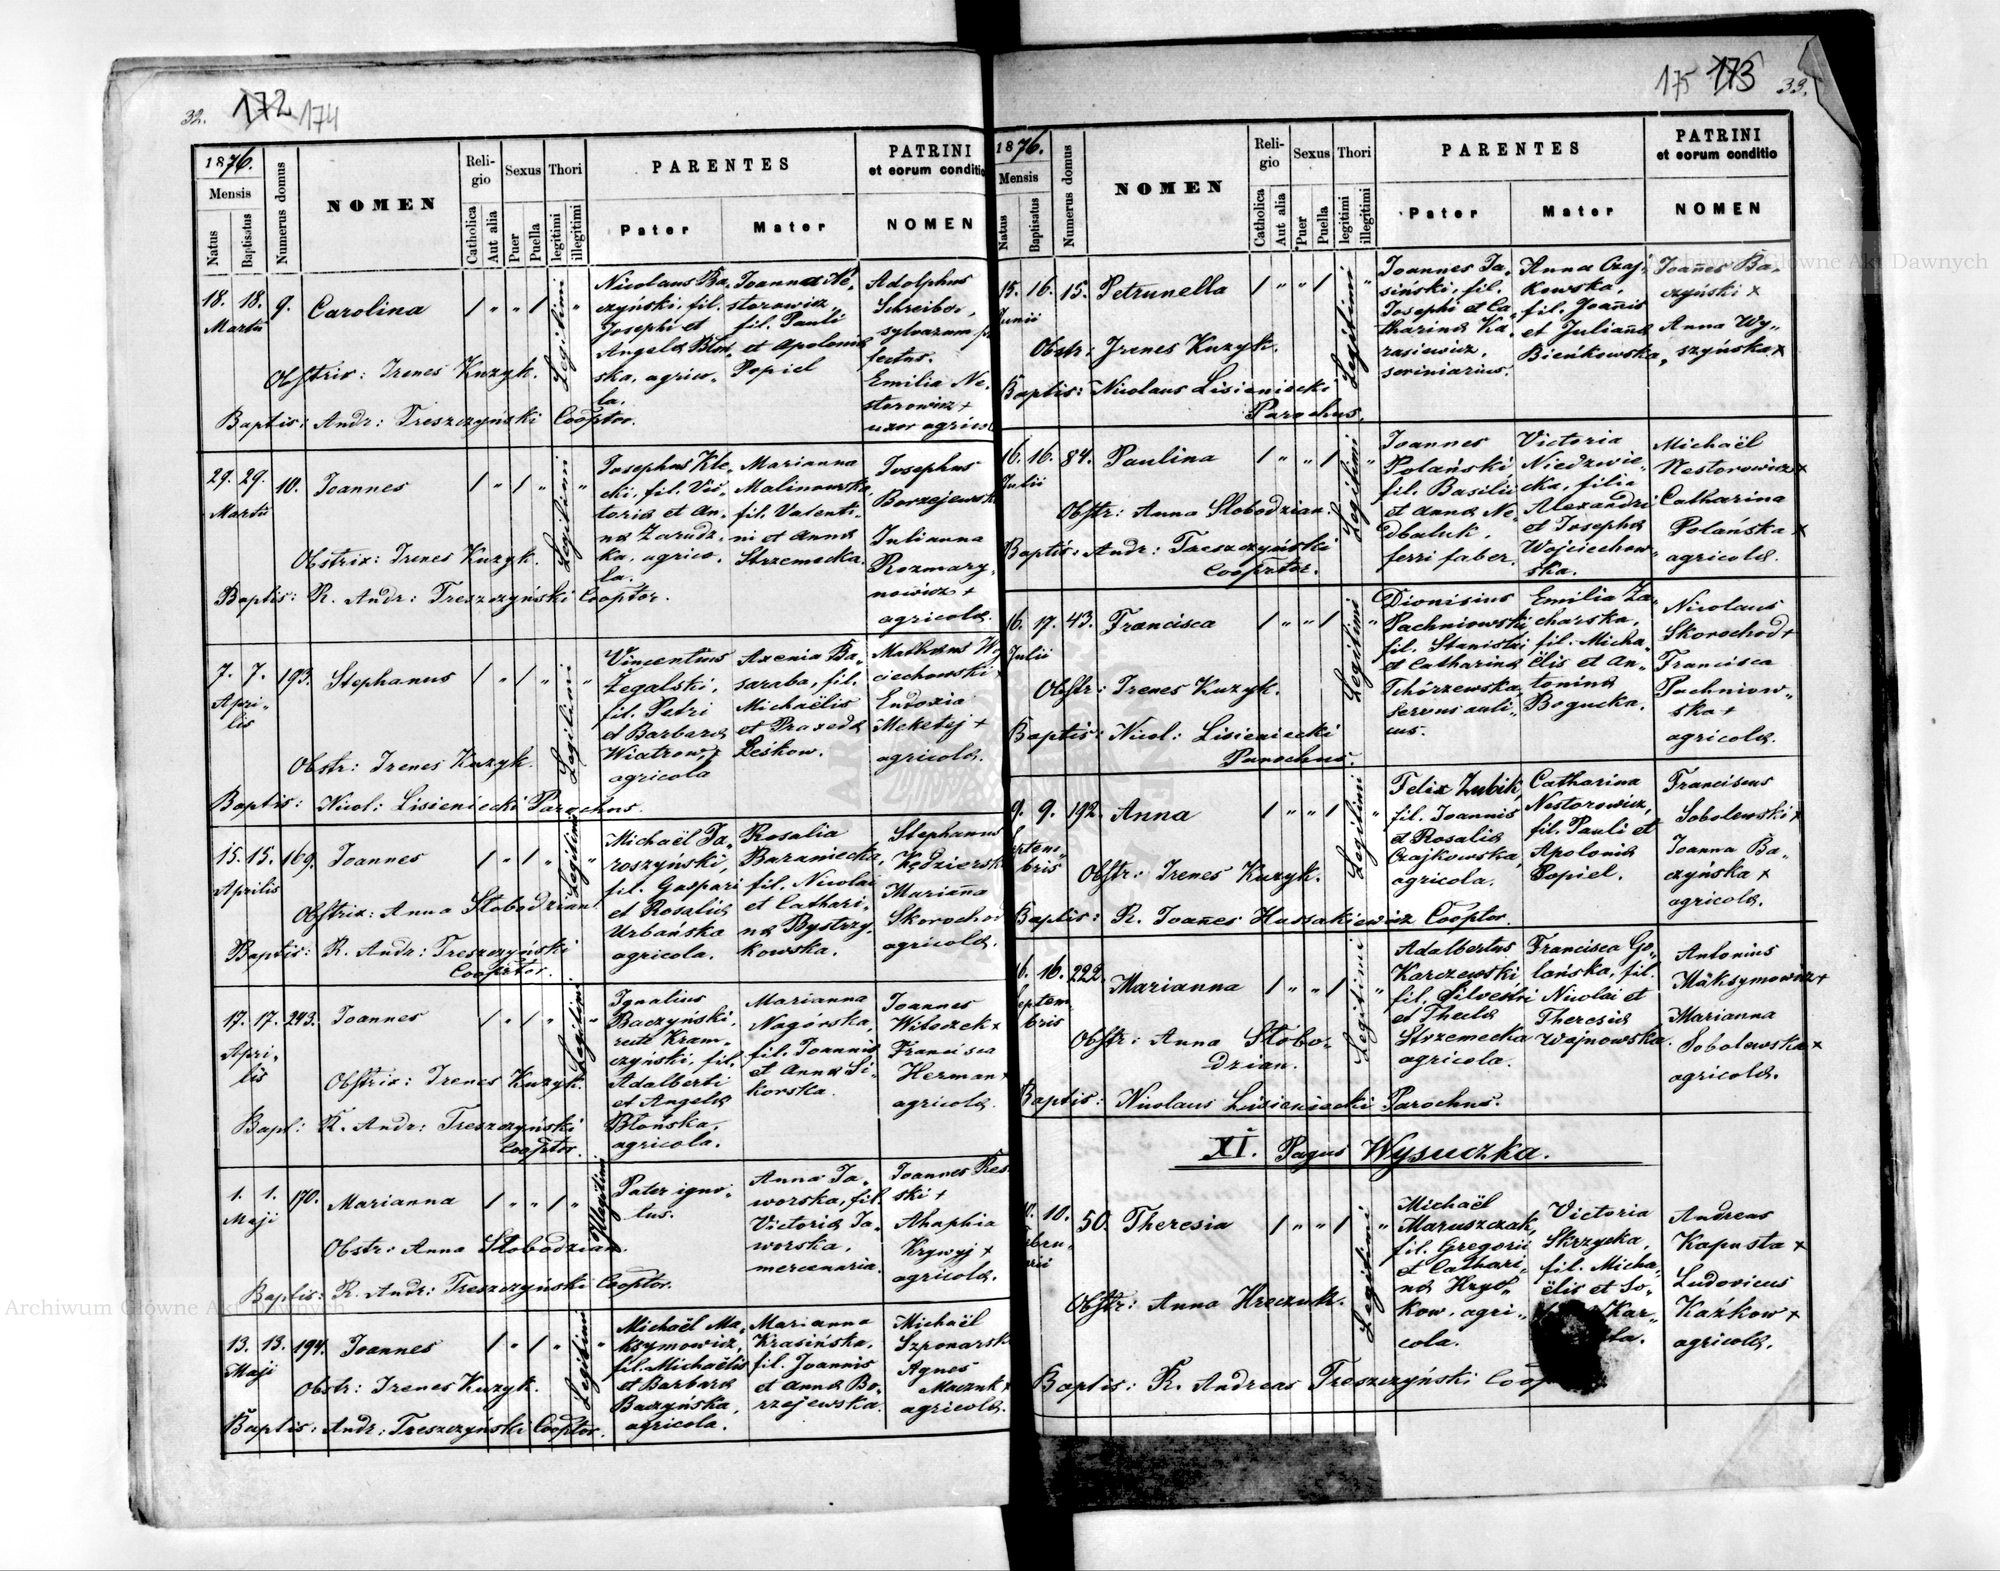 32. 172 174
1876.
Mensis
Natus
Baptisatus
Numerus domus
NOMEN
Religio
Catholica
Aut alia
Sexus
Puer
Puella
Thori
legitimi
illegitimi
PARENTES
Pater
Mater
PATRINI
et eorum conditio
NOMEN
18. 18. 9. Carolina / " " / "
Martii
Legitimi
Obstrix: Irenes Kuzyk.
Baptis: Andr: Treszczyński Cooptor.
Nicolaus Ba,
czyński, fil.
Josephi et
Angela Błoń,
ska, agrico,,
la.
Joanna Ne,
storowicz
fil. Pauli
et Apolonia
Popiel
Adolphus
Schreiber,
sylvarum
fectus.
Emilia Ne,
storowicz +
uxor agricol
29. 29. 10. Joannes / " / " "
Martii
Legitimi
Obstrix: Irenes Kuzyk.
Baptis: R. Andr: Treszczyński Cooptor.
Josephus Kle,
cki, fil. Vic,
toria et An,
na Zarudz,
ka, agrico,
la.
Marianna
Malinowska,
fil. Valenti,
ni et Anna
Strzemecka.
Josephus
Borzejewsk
Julianna
Rozmary,
nowicz +
agricola.
7. 7. 193. Stephanus / " / " "
Apri,,
lis
Legitimi
Obstr: Irenes Kuzyk.
Baptis: Nicol: Lisieniecki Parochus.
Vincentius
Żegalski,
fil. Petri
et Barbara
Wiatrow,
agricola
Axenia Ba,
saraba, fil.
Michaëlis
et Praxeda
Leskow.
Matheus W
ciechowski
Eudoxia
Meketej +
agricola.
15. 15. 169. Joannes / " / " "
Aprilis
Legitimi
Obstrix: Anna Słobodzian
Baptis: R. Andr: Treszczyński
Cooptor.
Michaël Ja,
roszyński,
fil. Gaspari
et Rosalia
Urbańska
agricola.
Rosalia
Baraniecka,
fil. Nicolai
et Cathari,
na Bystrzy,
kowska.
Stephanus
Kędziersk
Marianna
Skorochod
agricola.
17. 17. 243. Joannes / " / " "
Apri,
lis
Legitimi
Obstrix: Irenes Kuzyk.
Bapt: R. Andr: Treszczyński
Cooptor.
Ignatius
Baczyński,
recte Kram,
czyński, fil.
Adalberti
et Angela
Błońska,
agricola.
Marianna
Nagórska,
fil. Joannis
et Anna Si,
korska.
Joannes
Witoczek +
Francisca
Herman +
agricola.
1. 1. 170. Marianna / " " / "
Maji
Illegitimi
Obstr: Anna Słobodzian.
Baptis: R. Andr: Treszczyński Cooptor.
Pater igno,
tus.
Anna Ja,
worska, fil.
Victoria Ja,
worska,
mercenaria.
Joannes Res
ski +
Ahaphia
Krywyj +
agricola.
13. 13. 194. Joannes / " / " "
Maji
Legitimi
Obstr: Irenes Kuzyk.
Baptis: Andr: Treszczyński Cooptor.
Michaël Ma,
ksymowicz,
fil. Michaëlis
et Barbara
Baczyńska,
agricola.
Marianna
Krasińska,
fil. Joannis
et Anna Bo,
rzejewska.
Michaël
Szponarsk
Agnes
Maczuk +
agricola.
175 173 33.
1876.
Mensis
Natus
Baptisatus
Numerus domus
NOMEN
Religio
Catholica
Aut alia
Sexus
Puer
Puella
Thori
legitimi
illegitimi
PARENTES
Pater
Mater
PATRINI
et eorum conditio
NOMEN
15. 16. 15. Petrunella / " " / "
Junii
Legitimi
Obstr: Irenes Kuzyk.
Baptis: Nicolaus Lisieniecki
Parochus.
Joannes Ja,
siński, fil.
Josephi et Ca,
tharina Ka,
rasiewicz,
scriniarius.
Anna Czaj,
kowska,
fil. Joannis
et Julianna
Bieńkowska,
Joannes Ba,
czyński +
Anna Wy,,
szyńska +
16. 16. 84. Paulina / " " / "
Julii
Legitimi
Obstr: Anna Słobodzian.
Baptis: Andr: Treszczyński
Cooptor.
Joannes
Polański
fil. Basilii
et Anna Ne,
dbaluk,
ferri faber.
Victoria
Niedzwie,
cka, filia
Alexandri
et Josepha
Wojciechow,,
ska.
Michaël
Nestorowicz +
Catharina
Polańska +
agricola.
16. 17. 43. Francisca / " " / "
Julii
Legitimi
Obstr: Irenes Kuzyk.
Baptis: Nicol: Lisieniecki
Parochus.
Dionisius
Pachniowski
fil. Stanislai
et Catharina
Tchórzewska,
servus auli,,
cus.
Emilia Za,
charska,
fil. Micha,
ëlis et An,,
tonina
Bogucka.
Nicolaus
Skorochod +
Francisca
Pachniow,,
ska +
agricola.
9. 9. 192. Anna / " " / "
Septem,,
bris
Legitimi
Obstr: Irenes Kuzyk.
Baptis: R. Joannes Hassakiewicz Cooptor.
Felix Zubik,
fil. Joannis
et Rosalia
Czajkowska,
agricola.
Catharina
Nestorowicz,
fil. Pauli et
Apolonia
Popiel.
Franciscus
Sobolewski +
Joanna Ba,
czyńska +
agricola.
16. 16. 222. Marianna / " " / "
Septem,
bris
Legitimi
Obstr: Anna Słobo,
dzian.
Baptis: Nicolaus Lisieniecki Parochus.
Adalbertus
Karczewski,
fil. Silvestri
et Thecla
Strzemecka
agricola.
Francisca Go,
lańska, fil.
Nicolai et
Theresia
Wojnowska.
Antonius
Maksymowicz +
Marianna
Sobolewska +
agricola.
XI. Pagus Wysuczka.
10. 10. 50. Theresia / " " / "
Legitimi
Obstr: Anna Hreczuk.
Baptis: R. Andreas Treszczyński Coop
Michaël
Maruszczak,
fil. Gregorii
et Cathari,,
na Hryć,,
kow, agri,,
cola.
Victoria
Skrzycka,
fil. Micha,
ëlis et So,
Kar,,
Andreas
Kapusta +
Ludovicus
Kaźkow +
agricola.
Archiwum Główne Akt Dawnych
Archiwum Główne Akt Dawnych